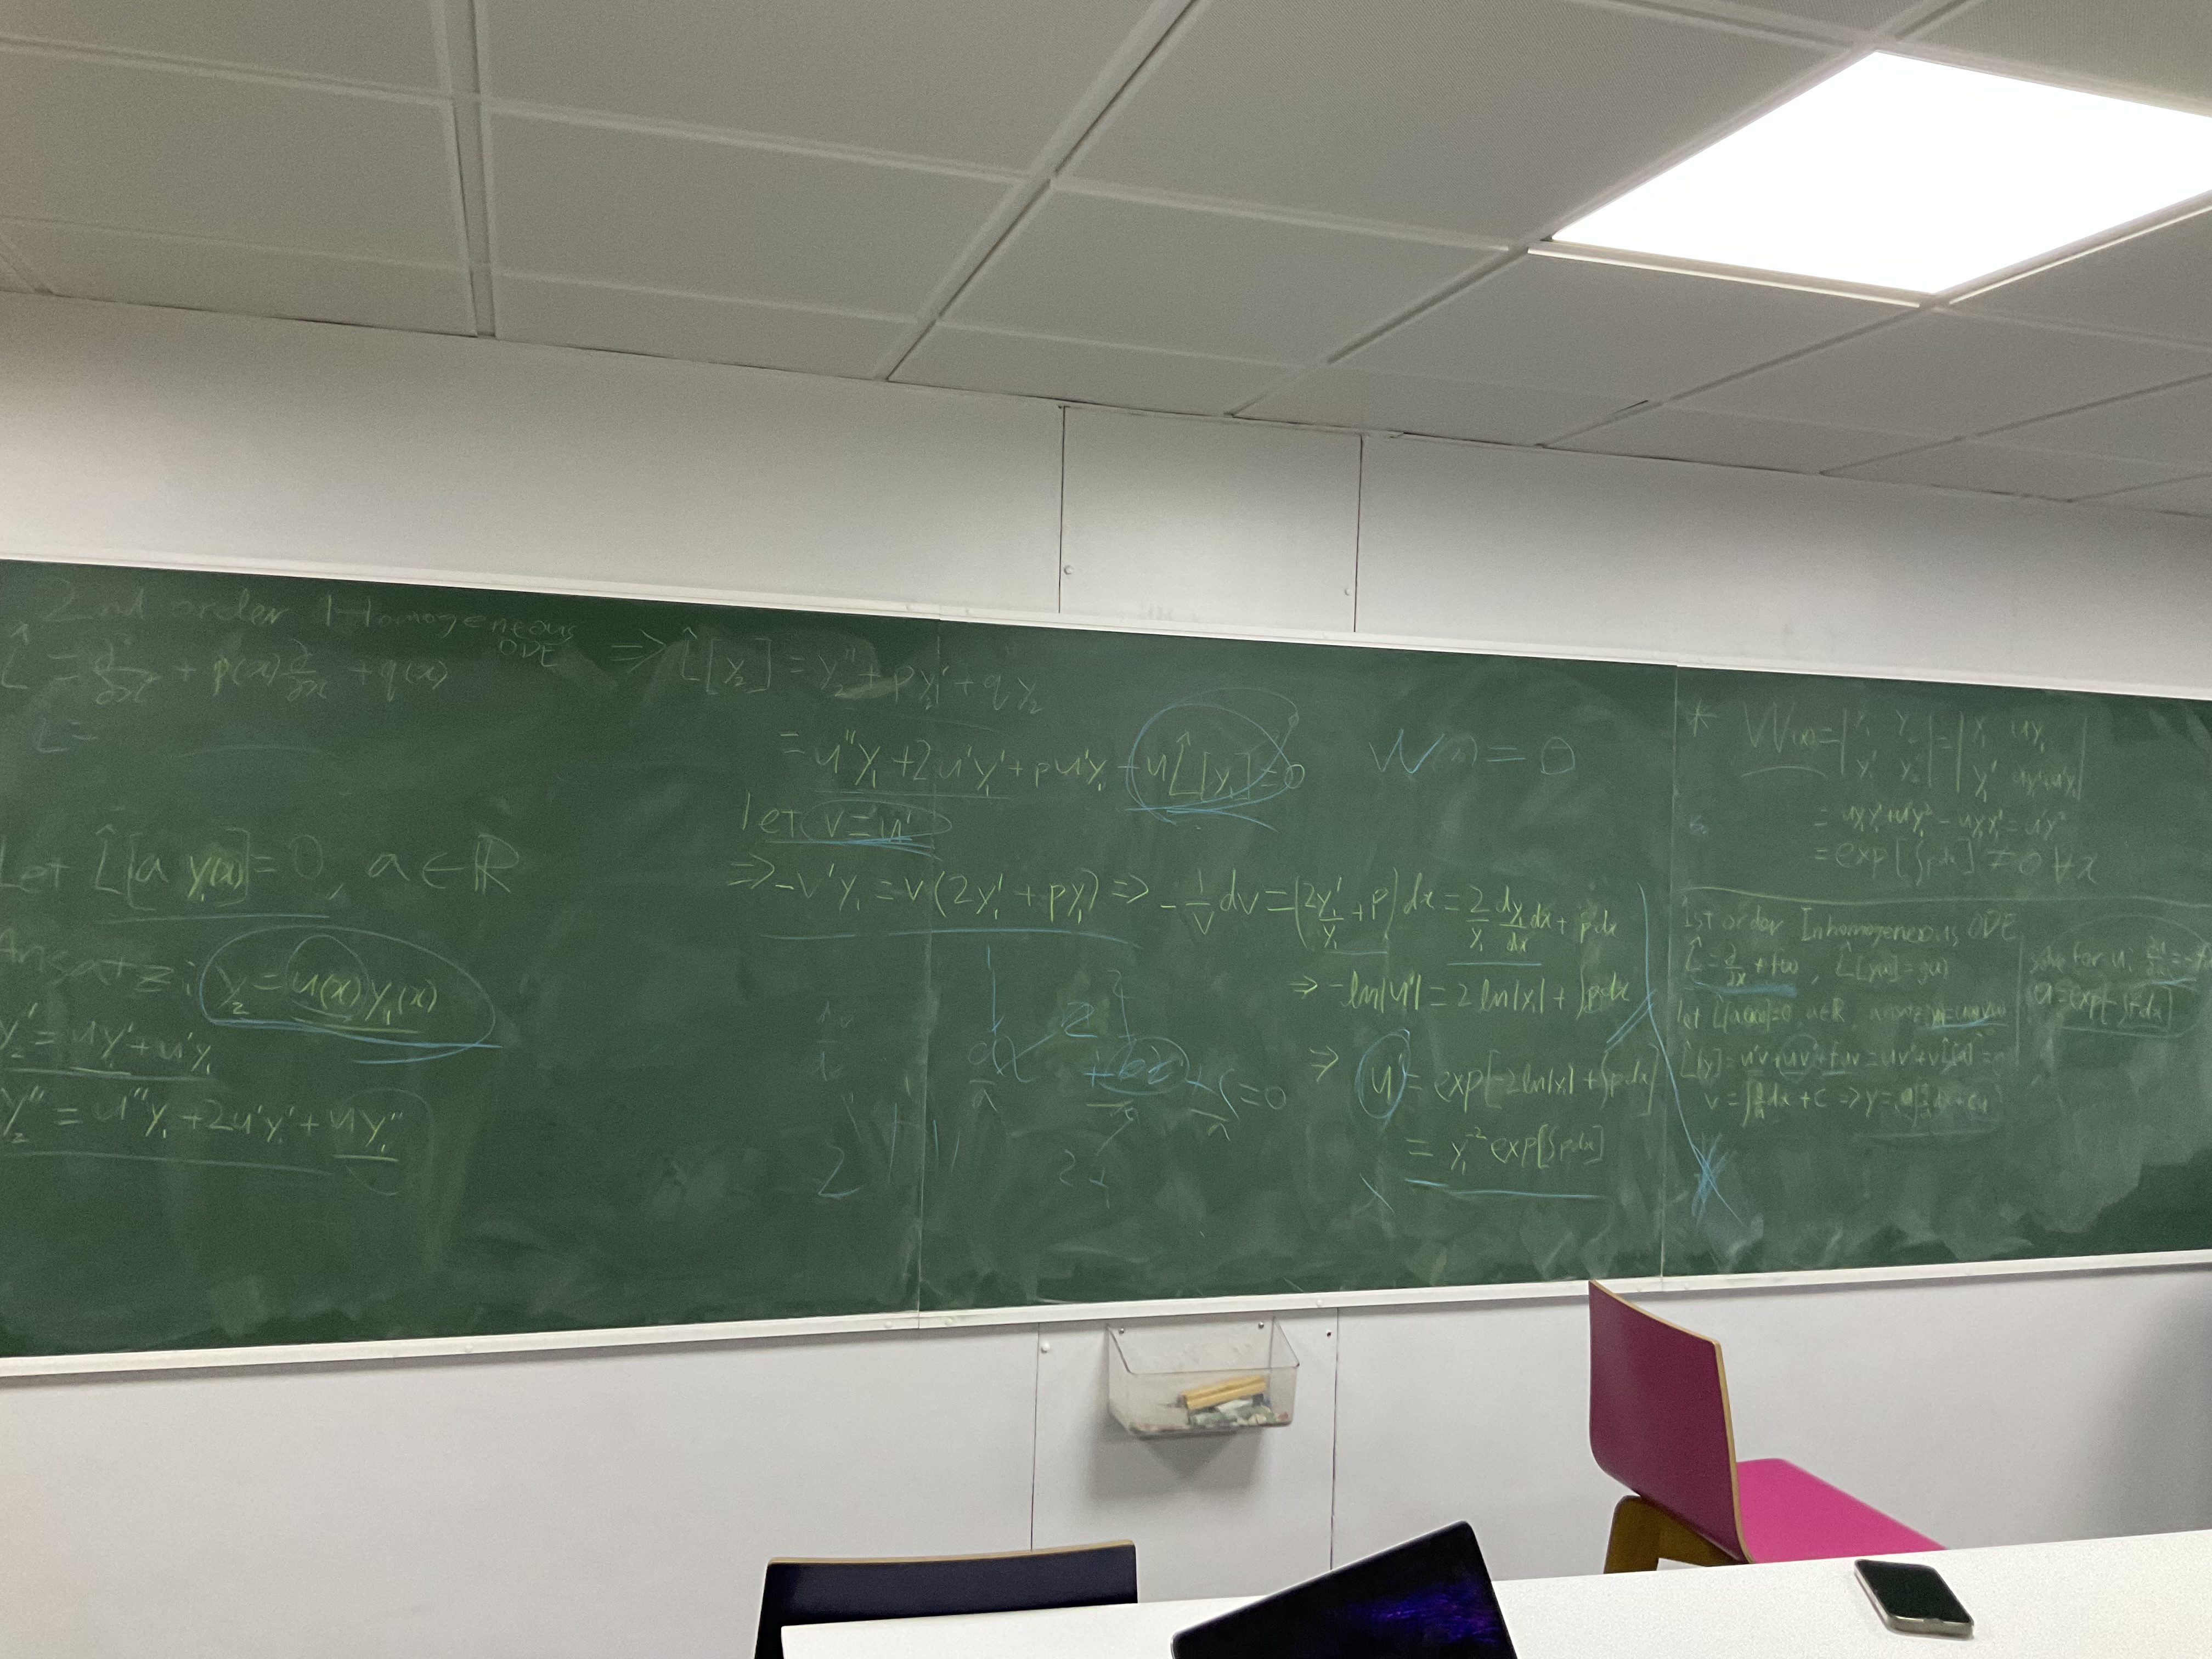 2nd order Homogeneous
ODE
L̂ = ∂²/∂x² + p(x) ∂/∂x + q(x)
L̂ =
Let L̂[a y₁(x)] = 0, a ∈ ℝ
Ansatz: y₂ = u(x) y₁(x)
y₂' = uy₁' + u'y₁
y₂'' = u''y₁ + 2u'y₁' + uy₁''
⇒ L̂[y₂] = y₂'' + py₂' + qy₂
= u''y₁ + 2u'y₁' + pu'y₁ + uL̂[y₁] = 0
let v = u'
⇒ -v'y₁ = v(2y₁' + py₁) ⇒ -1/v dv = (2y₁'/y₁ + p) dx = 2/y₁ dy₁/dx dx + p dx
⇒ -ln|u'| = 2 ln|y₁| + ∫p dx
⇒ u' = exp[-2ln|y₁| + ∫p dx]
= y₁⁻² exp[∫p dx]
W(x) = 0
* W(x) = |y₁ y₂; y₁' y₂'| = |y₁ uy₁; y₁' uy₁'+u'y₁|
= uy₁y₁' + u'y₁² - uy₁y₁' = u'y₁²
= exp[∫p dx] ≠ 0 ∀x
1st order Inhomogeneous ODE
L̂ = ∂/∂x + f(x), L̂[y(x)] = g(x)
let L̂[a u(x)] = 0, a ∈ ℝ, ansatz y = u(x)v(x)
L̂[y] = u'v + uv' + fuv = uv' + vL̂[u] =
v = ∫g/u dx + c ⇒ y = u∫g/u dx + cu
solve for u: ∂u/∂x = -f
u = exp[-∫f dx]